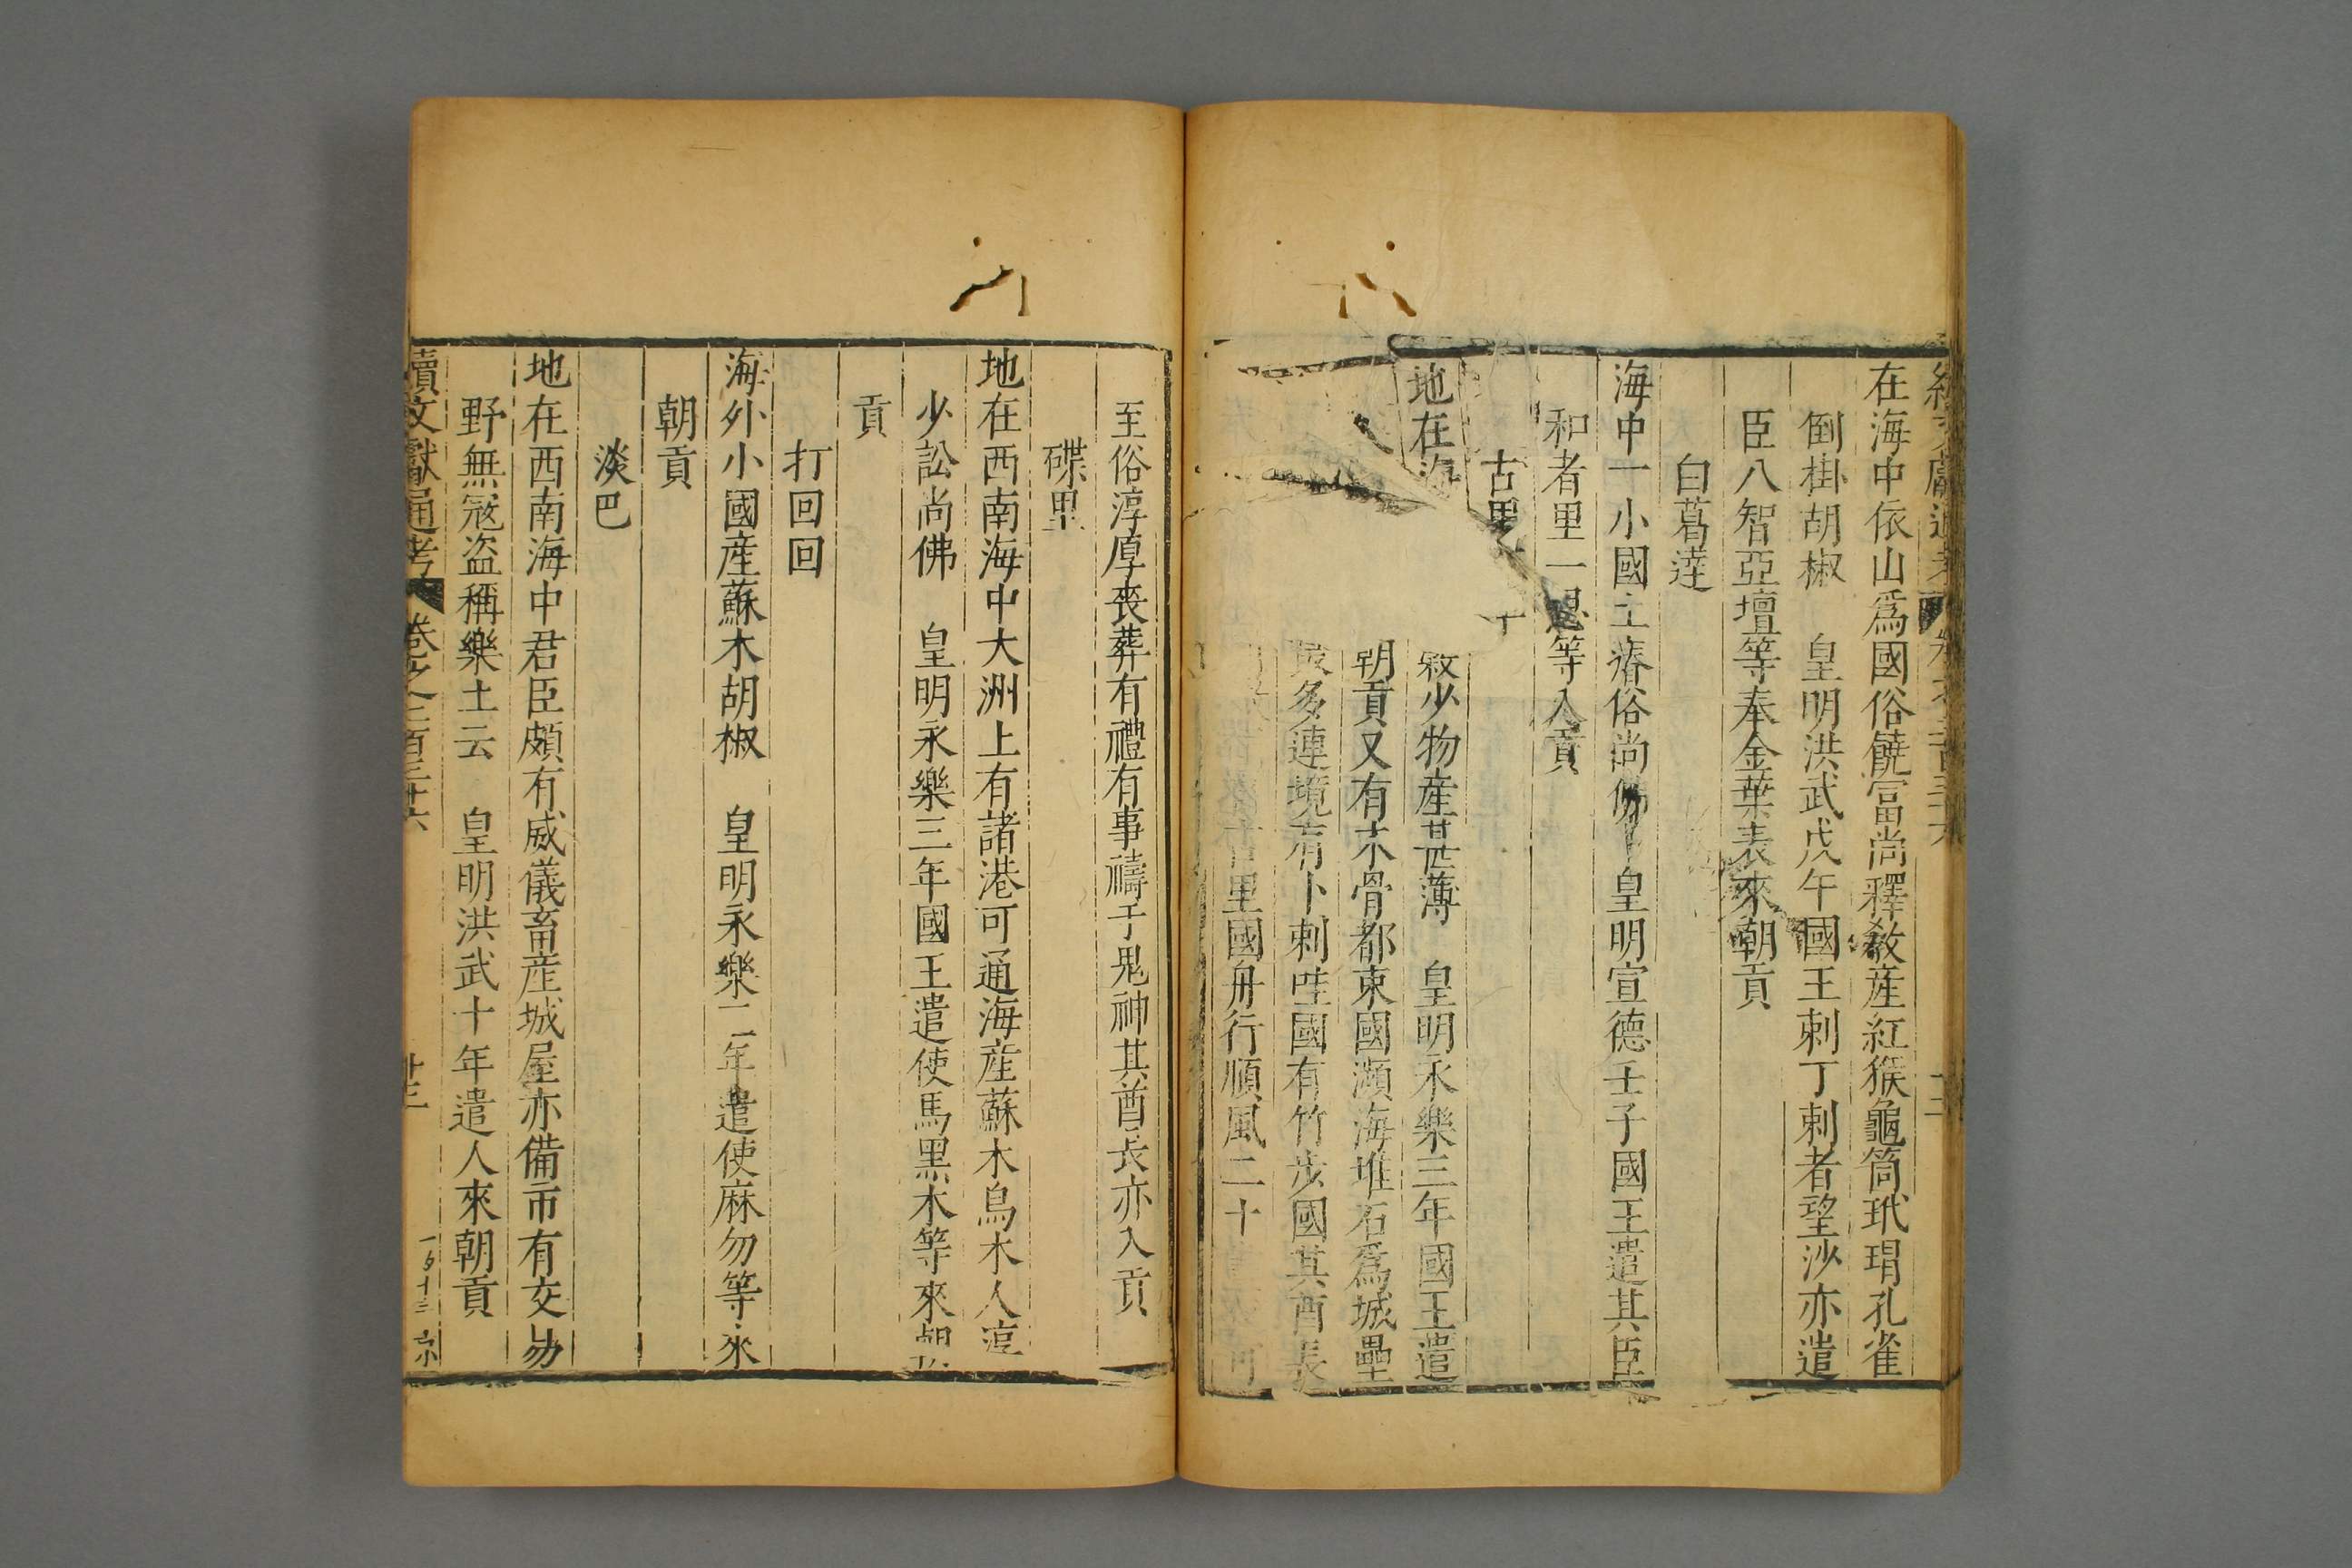 在海中依山爲國俗饒富尚釋教産紅猴龜筒玳瑁孔雀
倒掛胡椒 皇明洪武戊午國王剌丁剌者望沙亦遣
臣八智亞壇等奉金葉表來朝貢
白葛達
海中一小國土瘠俗尚佛 皇明宣德壬子國王遣其臣
和者里一思等入貢
古里
地在海 少物産甚薄 皇明永樂三年國王遣
朝貢又有木骨都束國瀕海堆石爲城壘
多連境有卜剌哇國有竹步國其酋長
里國舟行順風二十
至俗淳厚喪葬有禮有事禱于鬼神其酋長亦入貢
碟里
地在西南海中大洲上有諸港可通海産蘇木烏木人淳
少訟尚佛 皇明永樂三年國王遣使馬黑木等來朝
貢
打回回
海外小國産蘇木胡椒 皇明永樂二年遣使麻勿等來
朝貢
淡巴
地在西南海中君臣頗有威儀畜産城屋亦備市有交易
野無冦盗稱樂土云 皇明洪武十年遣人來朝貢
續文獻通考 卷之二百三十六 廿三